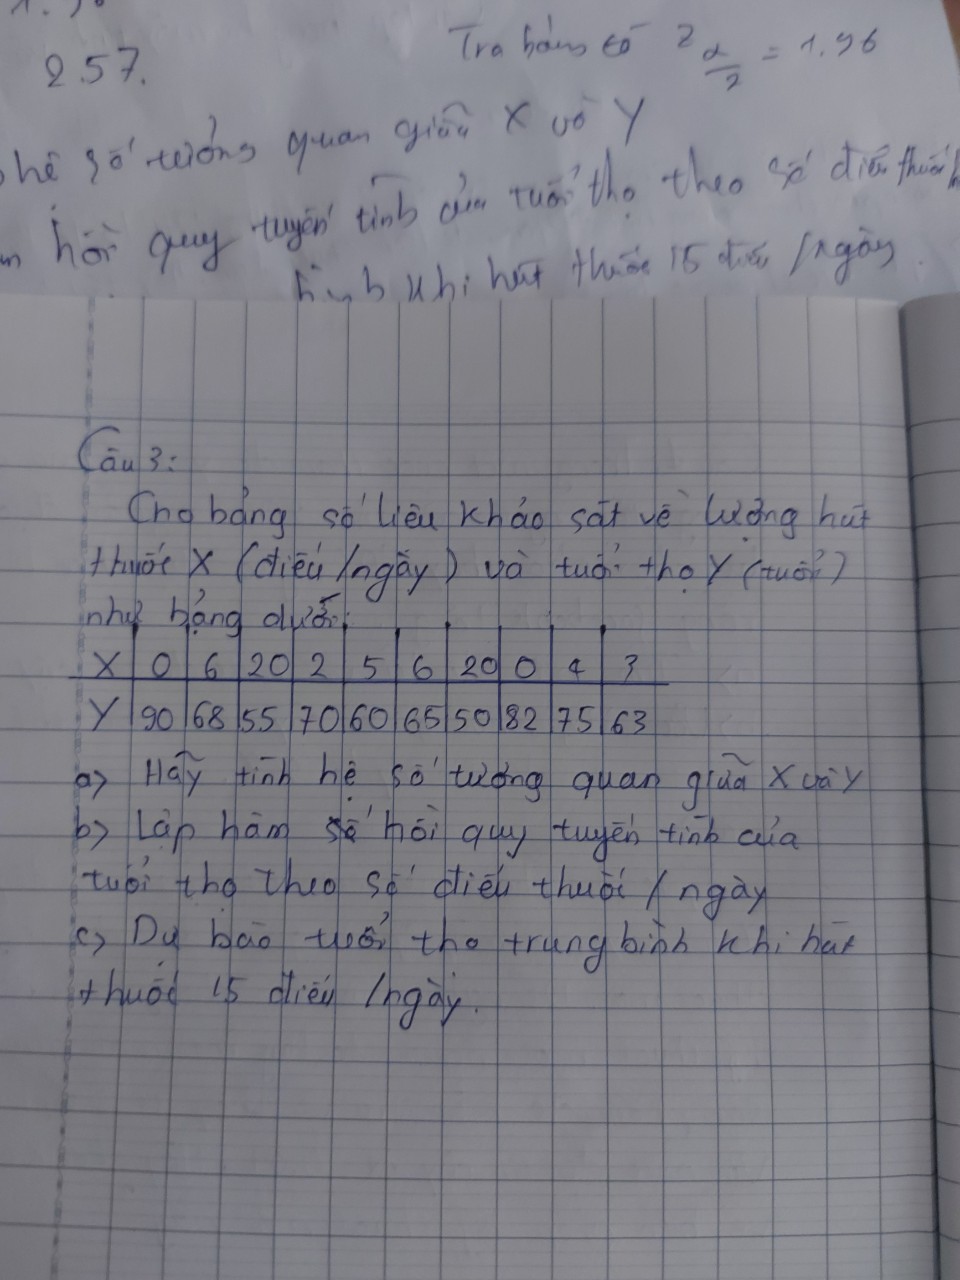 2.57.
Tra bảng có Z α/2 = 1.96
hệ số tương quan giữa X và Y
hồi quy tuyến tính của tuổi thọ theo số điếu thuốc
khi hút thuốc 15 điếu /ngày.
Câu 3:
Cho bảng số liệu khảo sát về lượng hút
thuốc X (điếu /ngày) và tuổi thọ Y (tuổi)
như bảng dưới:
X 0 6 20 2 5 6 20 0 4 3
Y 90 68 55 70 60 65 50 82 75 63
a) Hãy tính hệ số tương quan giữa X và Y
b) Lập hàm số hồi quy tuyến tính của
tuổi thọ theo số điếu thuốc / ngày
c) Dự báo tuổi thọ trung bình khi hút
thuốc 15 điếu /ngày.